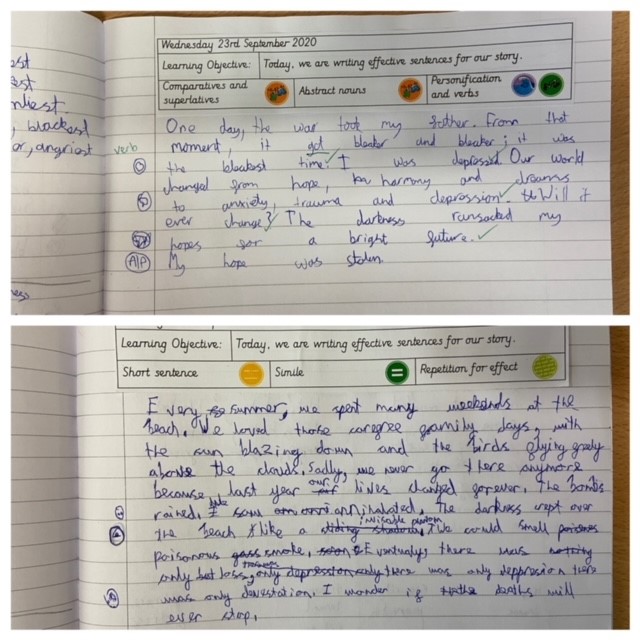 est
est
mliest
, blackest
or, angriest
ess
Wednesday 23rd September 2020
Learning Objective: Today, we are writing effective sentences for our story.
Comparatives and superlatives Abstract nouns Personification and verbs
One day, the war took my father. From that
verb moment, it got bleaker and bleaker; it was
the bleakest time. I was depressed. Our world
changed from hope, harmony and dreams
to anxiety, trauma and depression. Will it
ever change? The darkness ransacked my
hopes for a bright future.
A/P My hope was stolen.
Learning Objective: Today, we are writing effective sentences for our story.
Short sentence Simile Repetition for effect
Every summer, we spent many weekends at the
beach. We loved those caregree family days, with
the sun blazing down and the birds flying freely
above the clouds. Sadly, we never go there anymore
because last year our lives changed forever. The bombs
rained. I saw annihalated. The darkness crept over
the beach like a invisable We could smell
poisonous smoke, Eventualy, there was
only loss, there was only deppresion there
was only devestation. I wonder if the deaths will
ever stop.